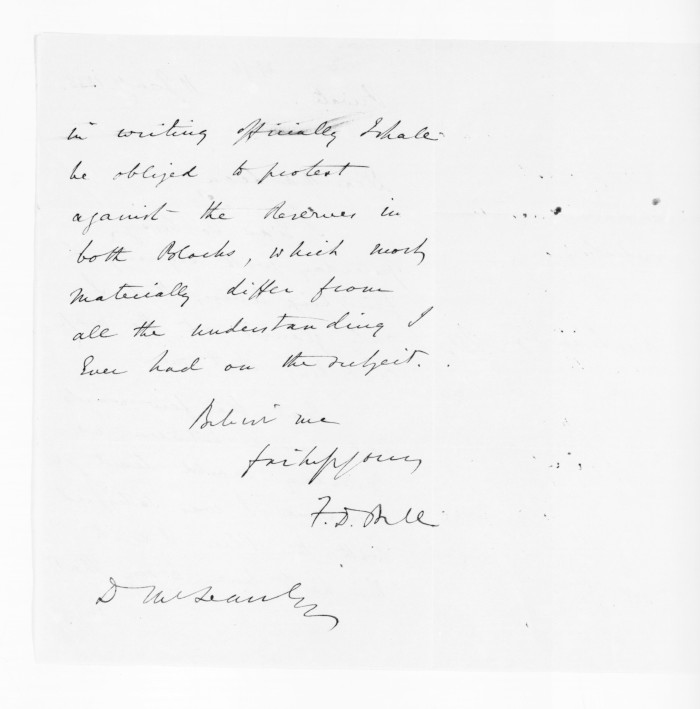 in writing officially I shall
be obliged to protest
against the Reserves in
both Blocks, which most
materially differ from
all the understanding I
Ever had on the subject.
Believe me
faithfy yours
F. D. Bell
D McLean Esq